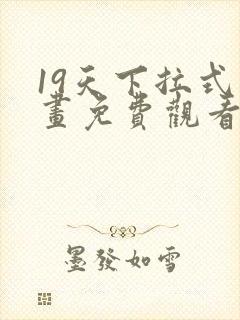 19天下拉式
畫免費觀看
墨發如雪